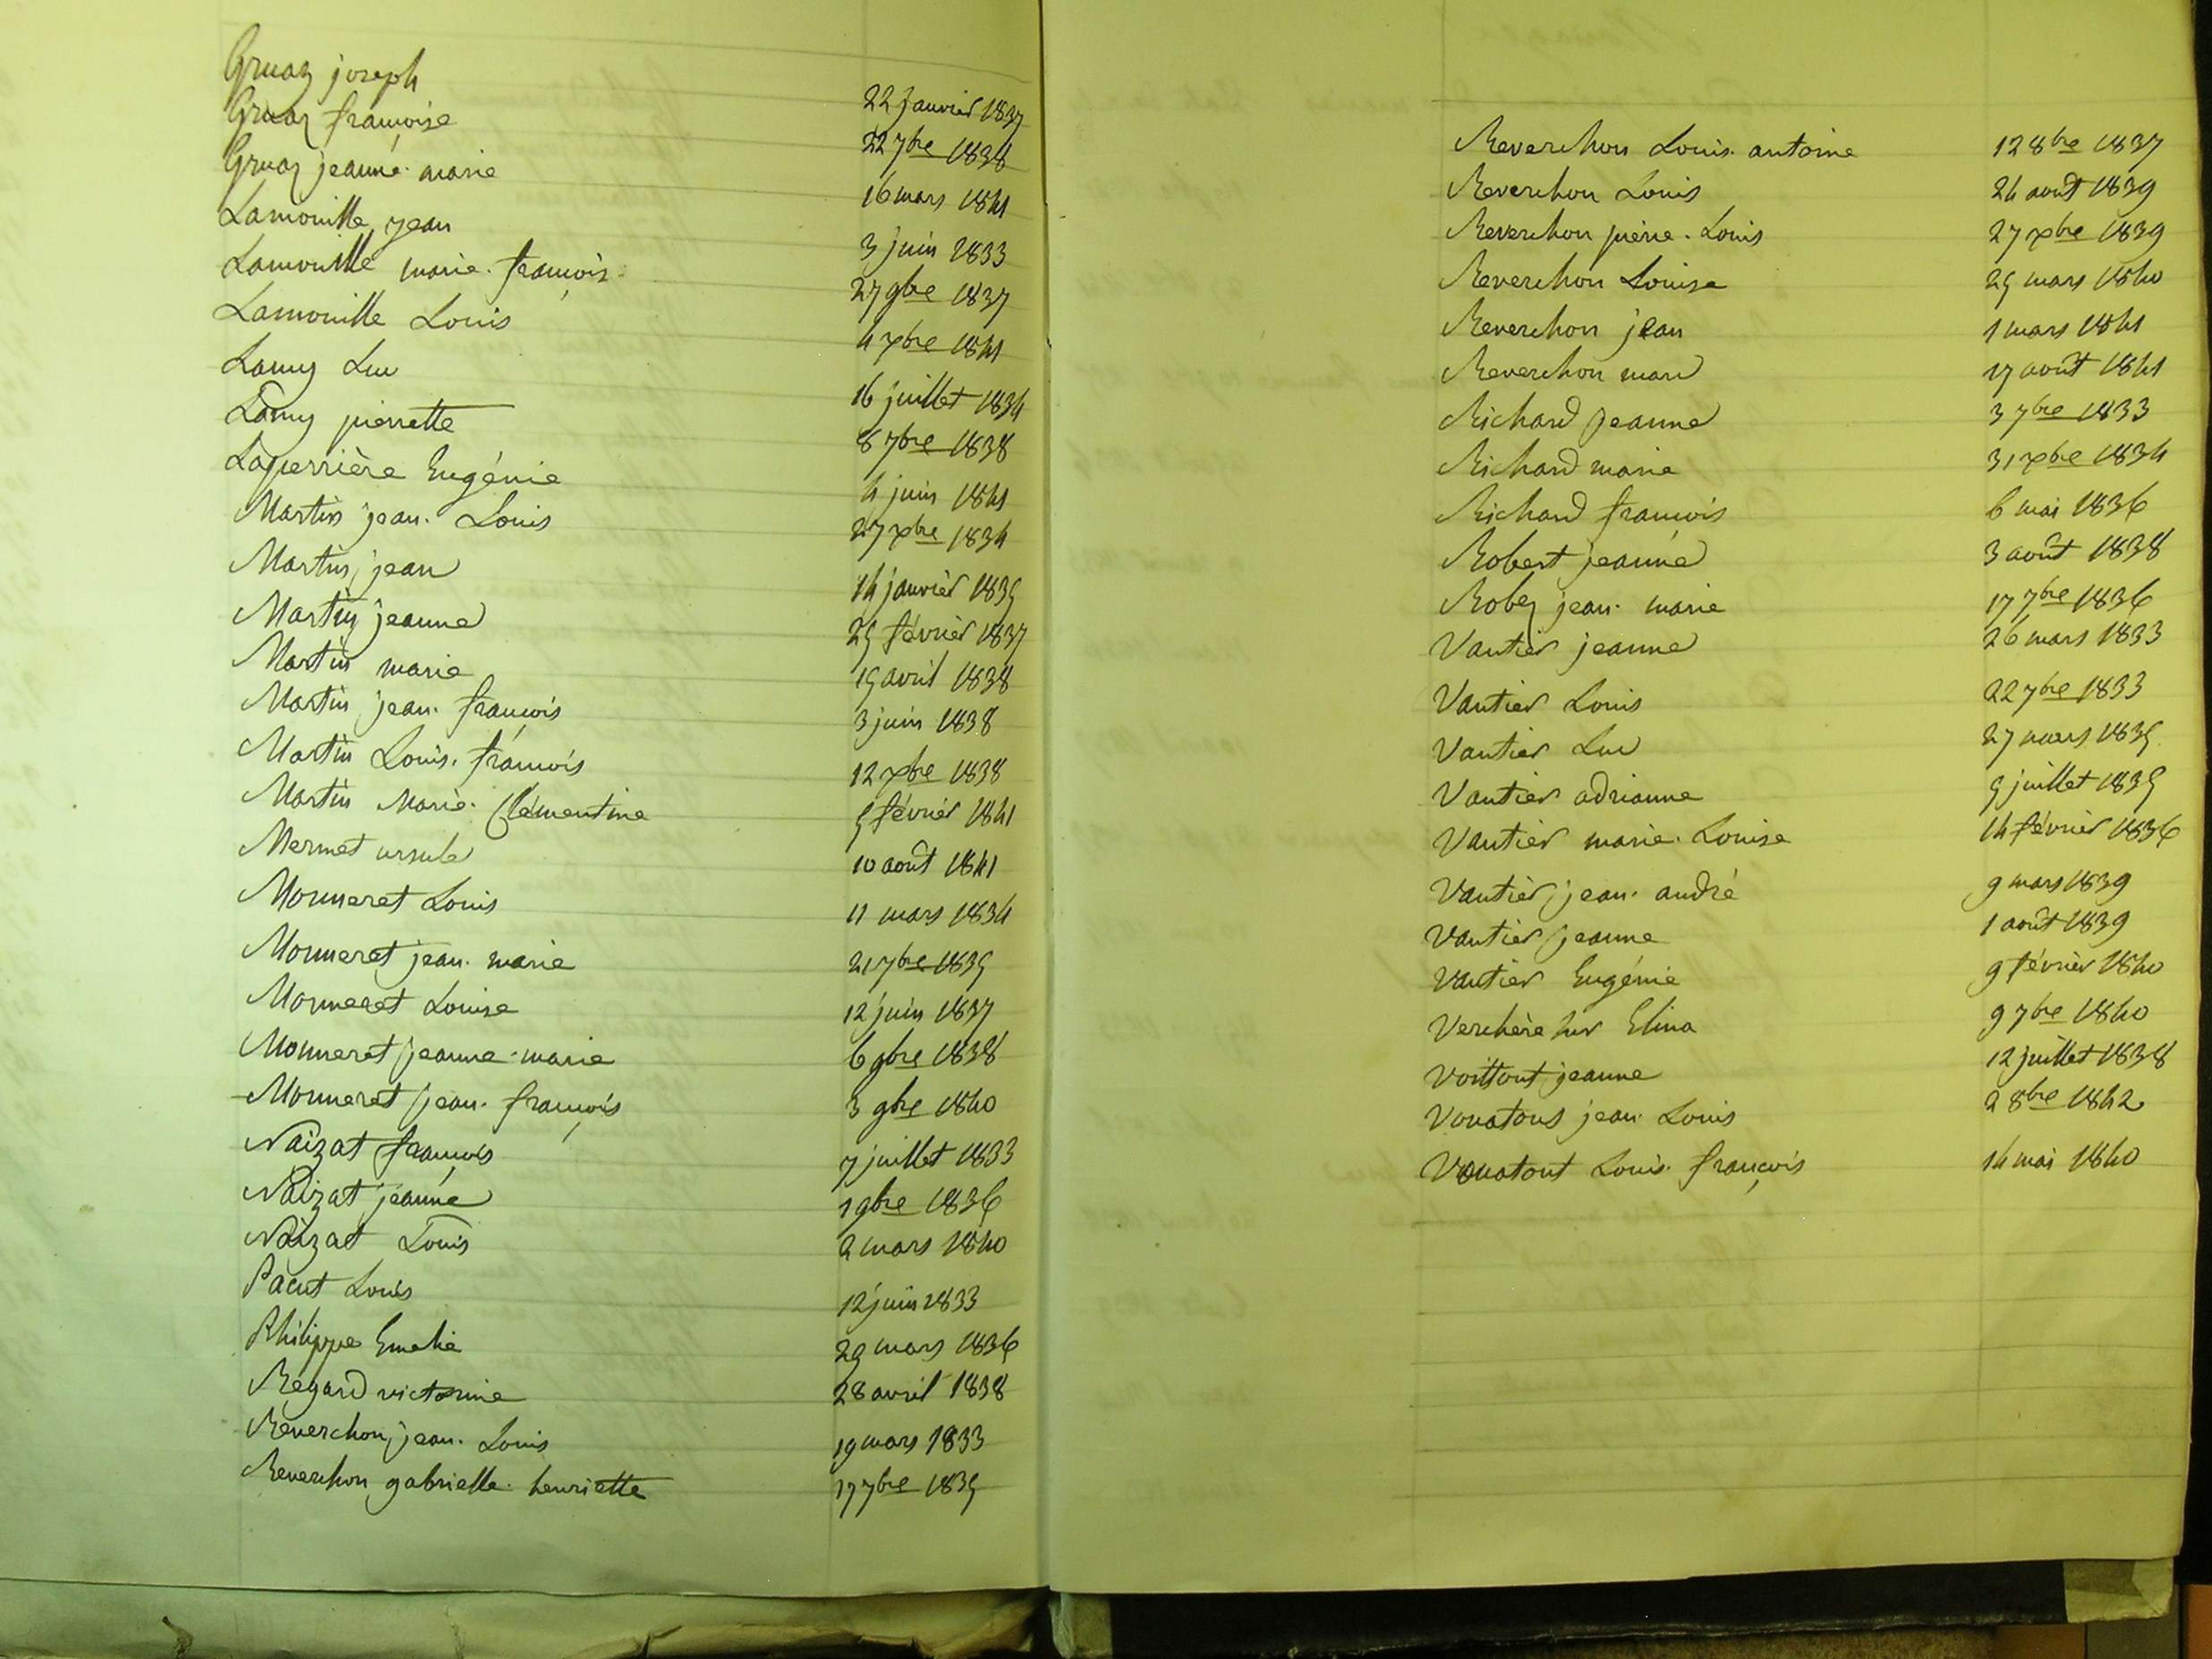 Gruaz joseph 22 janvier 1837
Gruaz françoise 22 7bre 1838
Gruaz jeanne. marie 16 mars 1841
Lamouille, jean 3 juin 1833
Lamouille marie. françois. 27 9bre 1837
Lamouille Louis 4 xbre 1841
Lamy Luc 16 juillet 1834
Lamy pierrette 8 7bre 1838
Laperrière Eugénie 4 juin 1841
Martin jean. Louis 27 xbre 1834
Martin, jean 14 janvier 1835
Martin jeanne 25 février 1837
Martin marie 15 avril 1838
Martin jean. françois 3 juin 1838
Martin Louis. françois 12 xbre 1838
Martin Marie. Clémentine 5 février 1841
Mermet ursule 10 août 1841
Monneret Louis 11 mars 1834
Monneret jean. marie 21 7bre 1835
Monneret Louise 12 juin 1837
Monneret jeanne. marie 6 9bre 1838
Monneret jean. françois 3 9bre 1840
Naizat françois 7 juillet 1833
Naizat jeanne 1 9bre 1836
Naizat Louis 2 mars 1840
Pacut Louis 12 juin 1833
Philippe Emelie 29 mars 1836
Regard victorine 28 avril 1838
Reverchon, jean. Louis 19 mars 1833
Reverchon gabrielle. henriette 17 7bre 1835
Reverchon Louis. antoine 12 8bre 1837
Reverchon Louis 24 août 1839
Reverchon pierre. Louis 27 xbre 1839
Reverchon Louise 25 mars 1840
Reverchon jean 1 mars 1841
Reverchon marc 17 août 1841
Richard jeanne 3 7bre 1833
Richard marie 31 xbre 1834
Richard françois 6 mai 1836
Robert jeanne 3 août 1838
Robez jean. marie 17 7bre 1836
Vantier jeanne 26 mars 1833
Vantier Louis 22 7bre 1833
Vantier Luc 27 mars 1835
Vantier adrianne 5 juillet 1835
Vantier marie. Louise 14 février 1836
Vantier jean. andré 9 mars 1839
Vantier jeanne 1 août 1839
Vantier Eugénie 9 février 1840
Verchère Elina 9 7bre 1840
Voittout jeanne 12 juillet 1838
Vouatous jean. Louis 2 8bre 1842
Vouatout Louis. françois 14 mai 1840